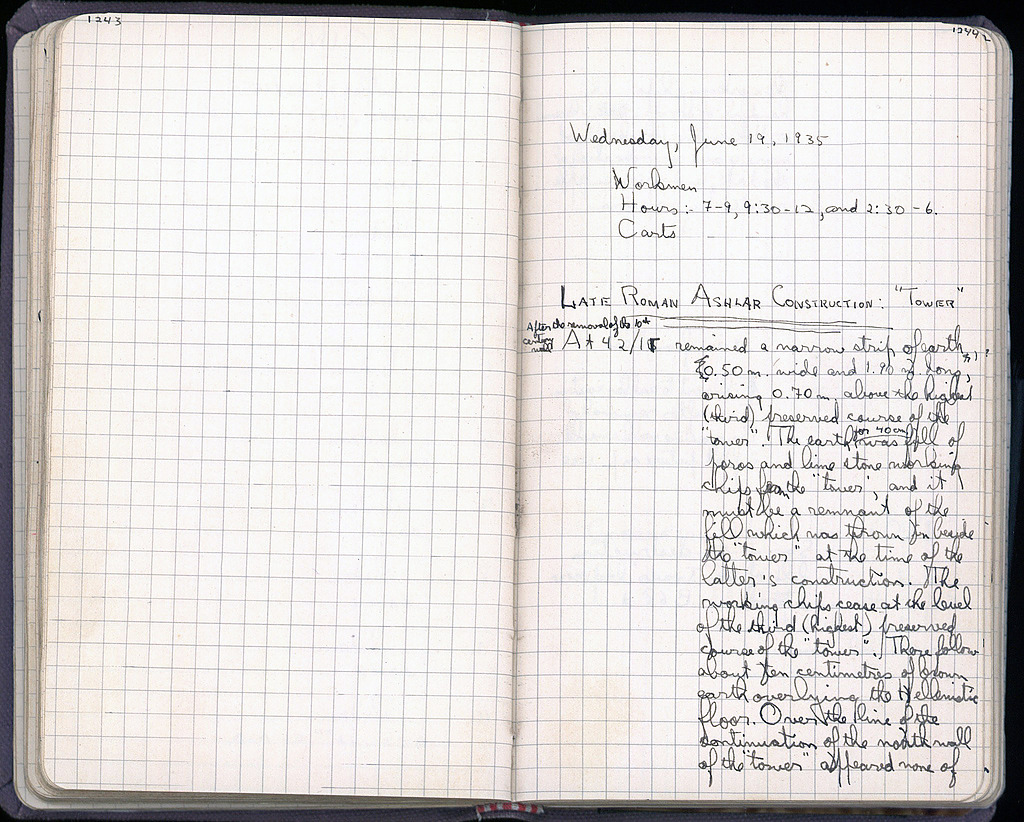 1243
1244
Wednesday, June 19, 1935
Workmen
Hours:- 7-9, 9:30-12, and 2:30-6.
Carts
LATE ROMAN ASHLAR CONSTRUCTION: "TOWER"
After the removal of the 10th
century
wall
At 42/ remained a narrow strip of earth
0.50 m. wide and 1.90 m. long,
arising 0.70 m. above the highest
(third) preserved course of the
"tower". The earth was full of
for 40 cm
poros and lime stone working
chips from the "tower", and it
must be a remnant of the
fill which was thrown in beside
the "tower" at the time of the
latter's construction. The
working chips cease at the level
of the third (highest) preserved
course of the "tower". There follow
about ten centimetres of brown
earth overlying the Hellenistic
floor. Over the line of the
continuation of the north wall
of the "tower" appeared none of